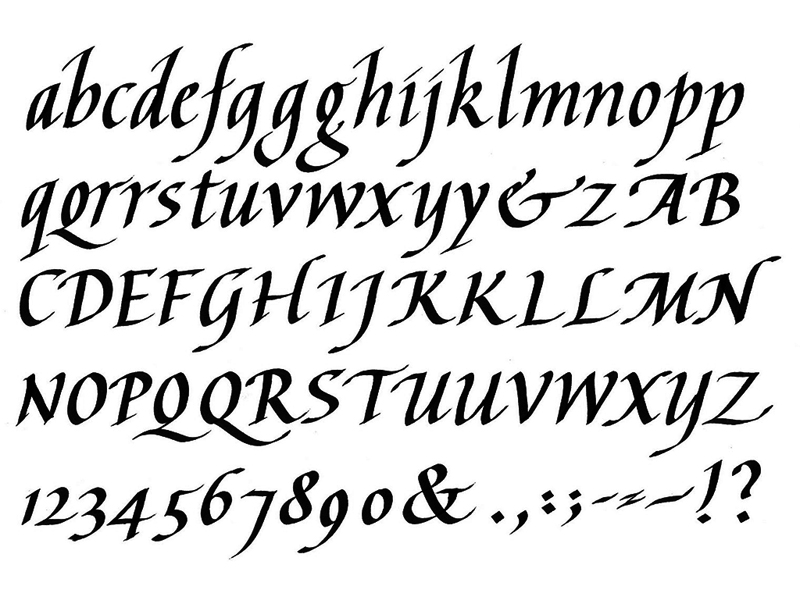 abcdefggghijklmnopp
qQrrstuvwxyy&zAB
CDEFGHIJKKLLMN
NOPQQRSTUUVWXYZ
1234567890&.,:;-=~!?